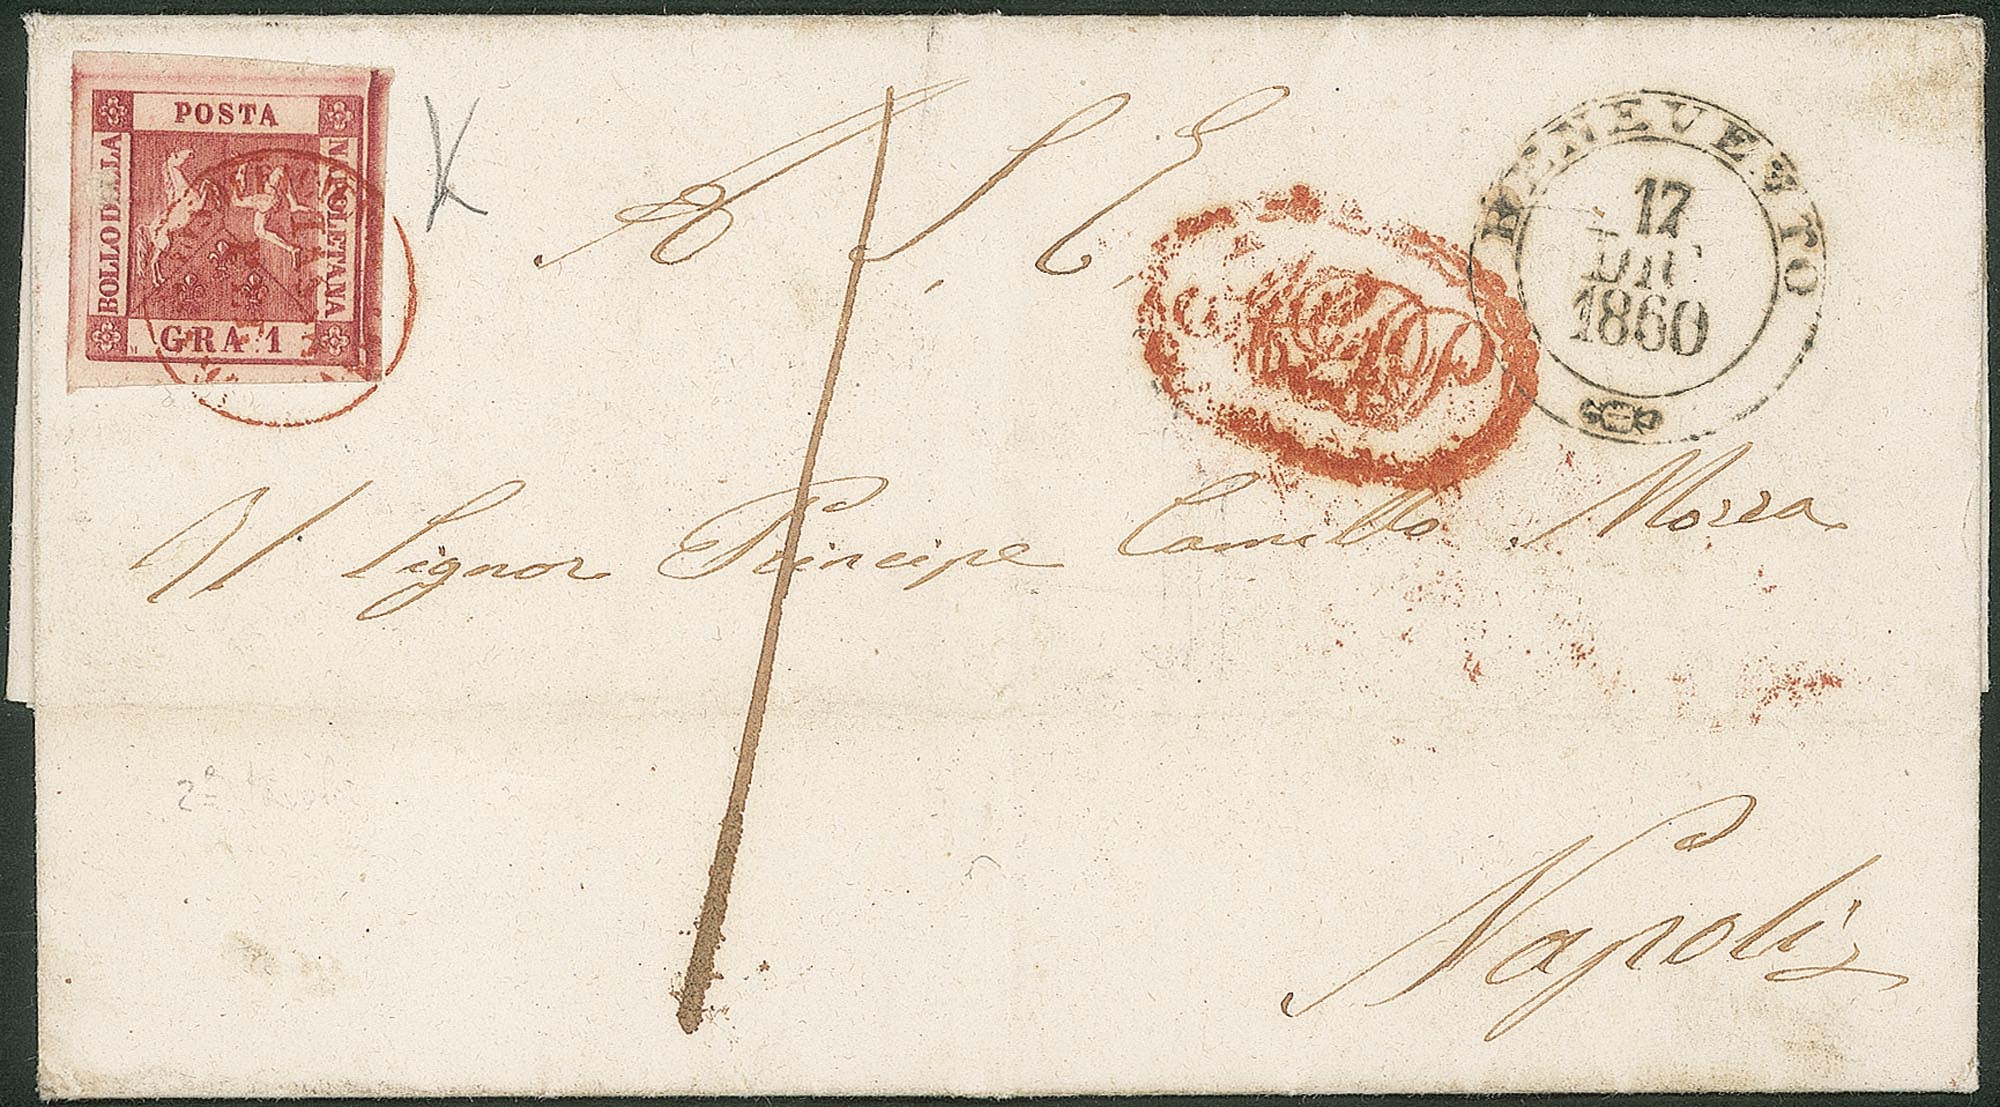 POSTA
BOLLO DELLA
NAPOLETANA
GRA 1
K
A S. E.
BENEVENTO
17
DIC
1860
Il Signor Principe Camillo Morra
2ª
Napoli